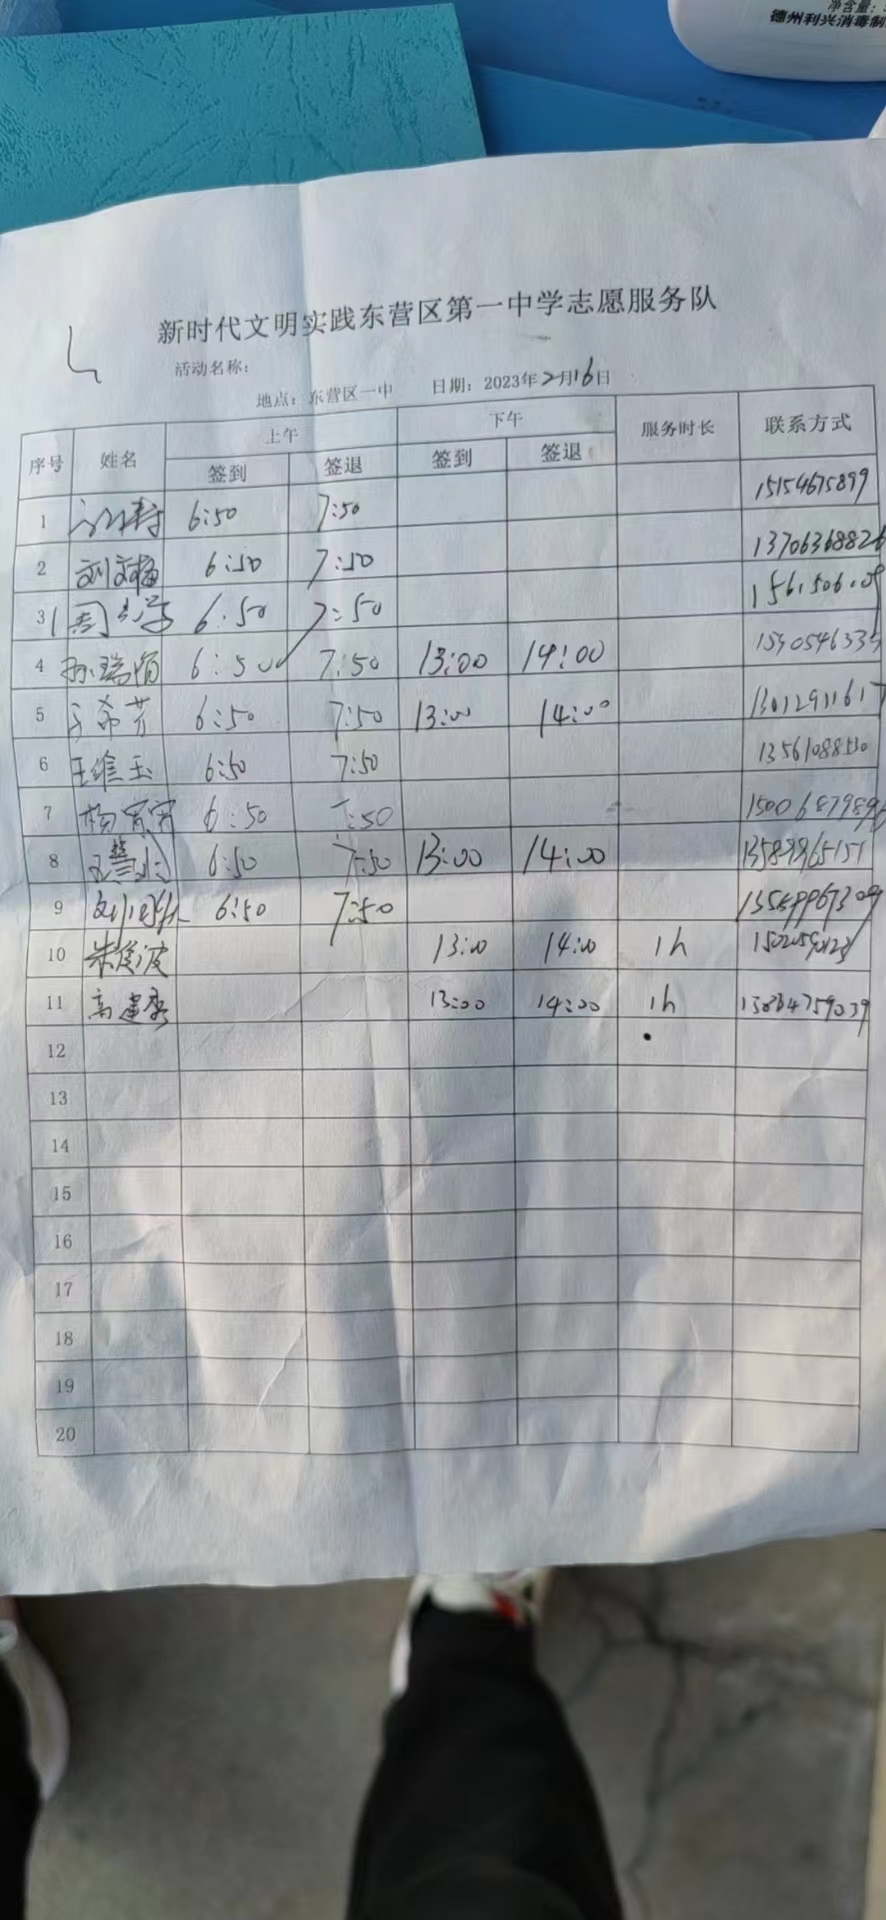 净含量:
德州利兴消毒制
新时代文明实践东营区第一中学志愿服务队
活动名称:
地点: 东营区一中 日期: 2023年2月16日
序号 姓名 上午 下午 服务时长 联系方式
签到 签退 签到 签退
1 6:50 7:50 15154675899
2 刘文梅 6:50 7:50 13706368826
3 周 6:50 7:50
4 孙瑞娟 6:50 7:50 13:00 14:00
5 6:50 7:50 13:00 14:00 13012911617
6 王维玉 6:50 7:50 13561088530
7 杨宵宵 6:50 7:50
8 王慧 6:50 7:50 13:00 14:00
9 6:50 7:50
10 朱俊波 13:00 14:00 1h
11 高建委 13:00 14:00 1h 13864759039
12
13
14
15
16
17
18
19
20